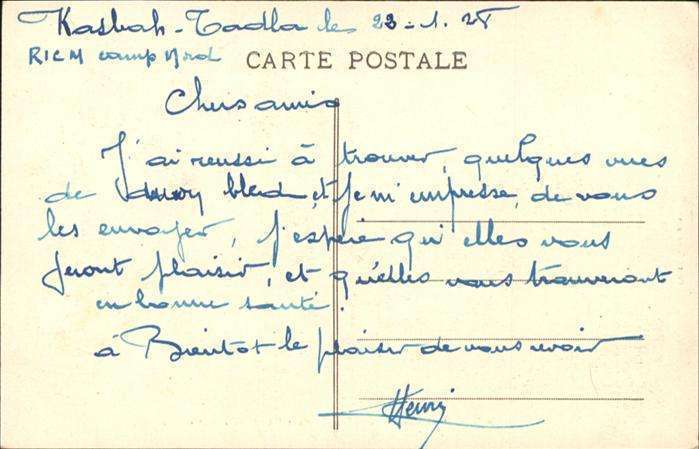 Kasbah-Tadla les 23-1.28
RICM camp Nord
CARTE POSTALE
Chers amis
J'ai reussi à trouver, quelques vues
de bled, et je m'empresse, de vous
les envoyer, j'espère qu'elles vous
feront plaisir, et qu'elles vous trouveront
en bonne santé.
à Bientot le plaisir de vous revoir
Henri